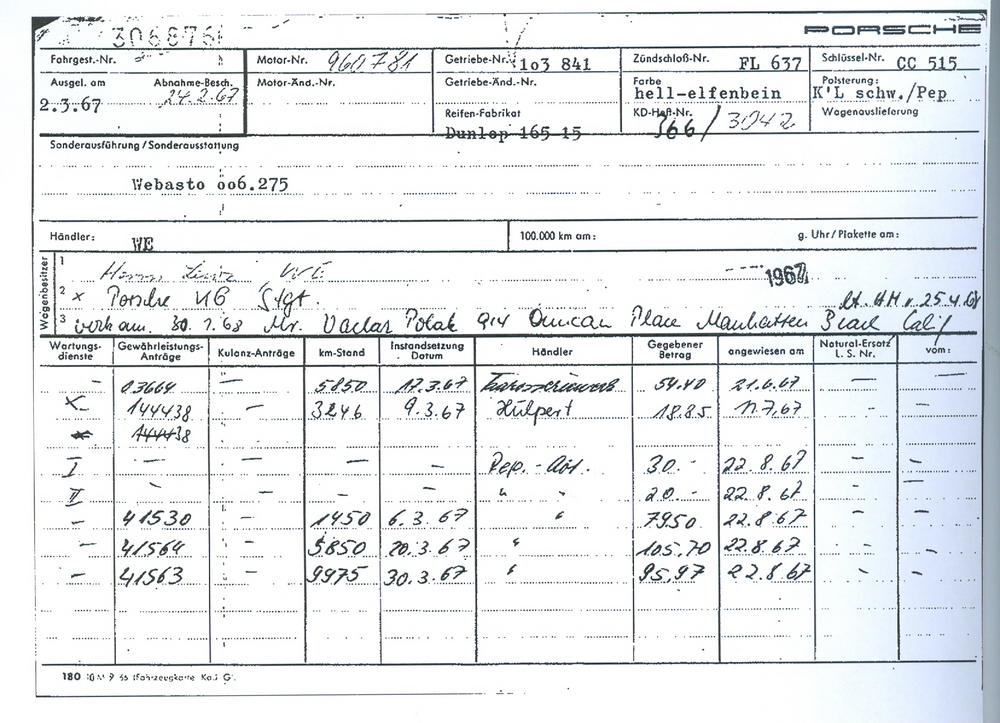 306876
PORSCHE
Fahrgest.-Nr. Motor-Nr. 960781 Getriebe-Nr. 103 841 Zündschloß-Nr. FL 637 Schlüssel-Nr. CC 515
Ausgel. am Abnahme-Besch. Motor-Änd.-Nr. Getriebe-Änd.-Nr. Farbe Polsterung:
2.3.67 24.2.67 hell-elfenbein K'L schw./Pep
Reifen-Fabrikat KD-Heft-Nr. Wagenauslieferung
Dunlop 165 15 366/3042
Sonderausführung / Sonderausstattung
Webasto oo6.275
Händler: WE 100.000 km am: g. Uhr/Plakette am:
Wagenbesitzer
1 Herrn 1967
2 x Porsche KG Stgt. 25.4.68
3 verk am. 30.7.68 Mr. Vaclav Polak 914 Duncan Place Manhatten Beach Calif
Wartungs-dienste Gewährleistungs-Anträge Kulanz-Anträge km-Stand Instandsetzung Datum Händler Gegebener Betrag angewiesen am Natural-Ersatz L. S. Nr. vom:
- 03664 - 5850 17.3.67 54.40 21.6.67 - -
X- 144438 - 3246 9.3.67 Hülpert 18.85 11.7.67 - -
144438
I - - - - Rep.-Abt. 30.- 22.8.67 - -
II - - - - " " 20.- 22.8.67 - -
- 41530 - 1450 6.3.67 " 7950 22.8.67 - -
- 41564 - 5850 20.3.67 " 105,70 22.8.67 - -
- 41563 - 9975 30.3.67 " 95,97 22.8.67 - -
180